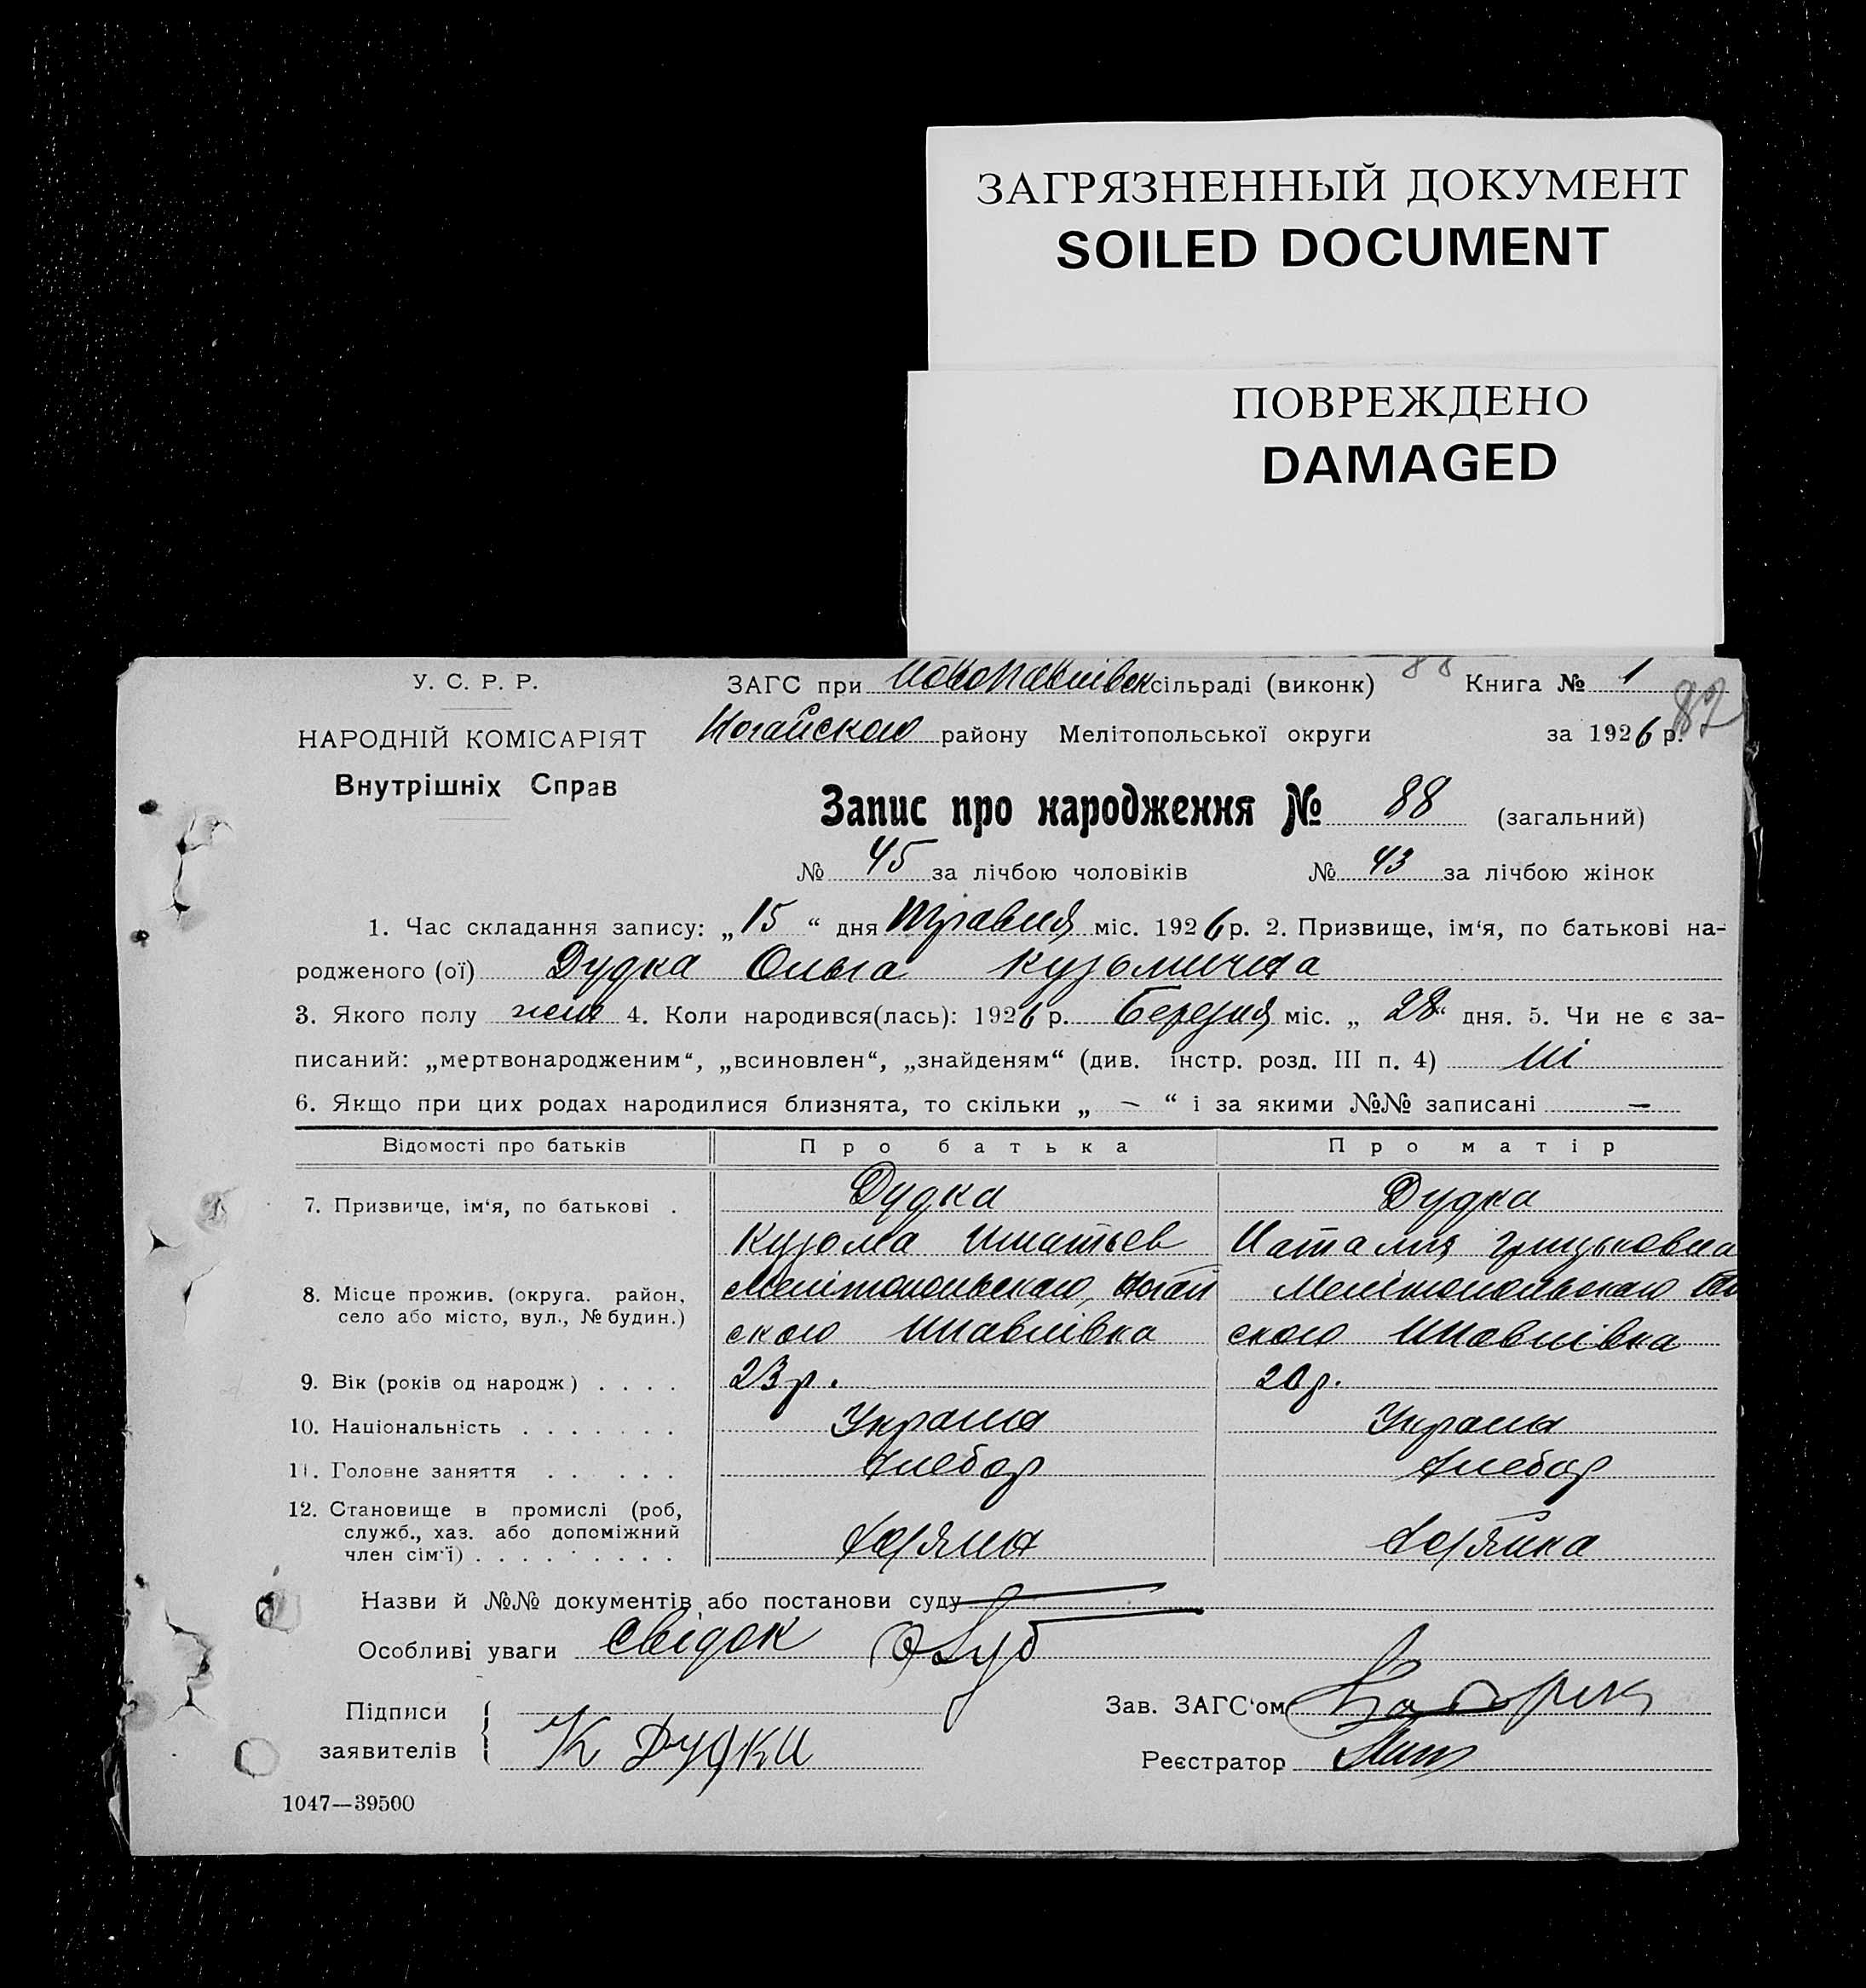 ЗАГРЯЗНЕННЫЙ ДОКУМЕНТ
SOILED DOCUMENT
ПОВРЕЖДЕНО
DAMAGED
У. С. Р. Р.
НАРОДНІЙ КОМІСАРІЯТ
Внутрішніх Справ
ЗАГС при Новопавлівск сільраді (виконк) 88 Книга № 1
82
Ногайского району Мелітопольської округи за 1926 р.
Запис про народження № 88 (загальний)
№ 45 за лічбою чоловіків № 43 за лічбою жінок
1. Час складання запису: „ 15 “ дня Травня міс. 1926 р. 2. Призвище, ім‘я, по батькові на-
родженого (ої) Дудка Ольга Кузьмична
3. Якого полу жен 4. Коли народився(лась): 1926 р. Березня міс. „ 28 “ дня. 5. Чи не є за-
писаний: „мертвонародженим“, „всиновлен“, „знайденям“ (див. інстр. розд. III п. 4) Ні
6. Якщо при цих родах народилися близнята, то скільки „ — “ і за якими №№ записані —
Відомості про батьків Про батька Про матір
7. Призвище, ім‘я, по батькові . Дудка Дудка
Кузьма Игнатьев Наталия Грицьковна
8. Місце прожив. (округа. район, село або місто, вул., № будин.) Мелітопольского, Ногай Мелітопольского
ского НПавлівка ского НПавлівка
9. Вік (років од народж) . . . . 23 р. 20 р.
10. Національність . . . . . . . Украина Украина
11. Головне заняття . . . . . Хлебор Хлебор
12. Становище в промислі (роб, служб., хаз. або допоміжний член сім‘ї) . . . . . . . . . Хозяин Хозяйка
Назви й №№ документів або постанови суду
Особливі уваги Свідок
Підписи
заявителів К Дудка
Зав. ЗАГС‘ом
Реєстратор
1047—39500